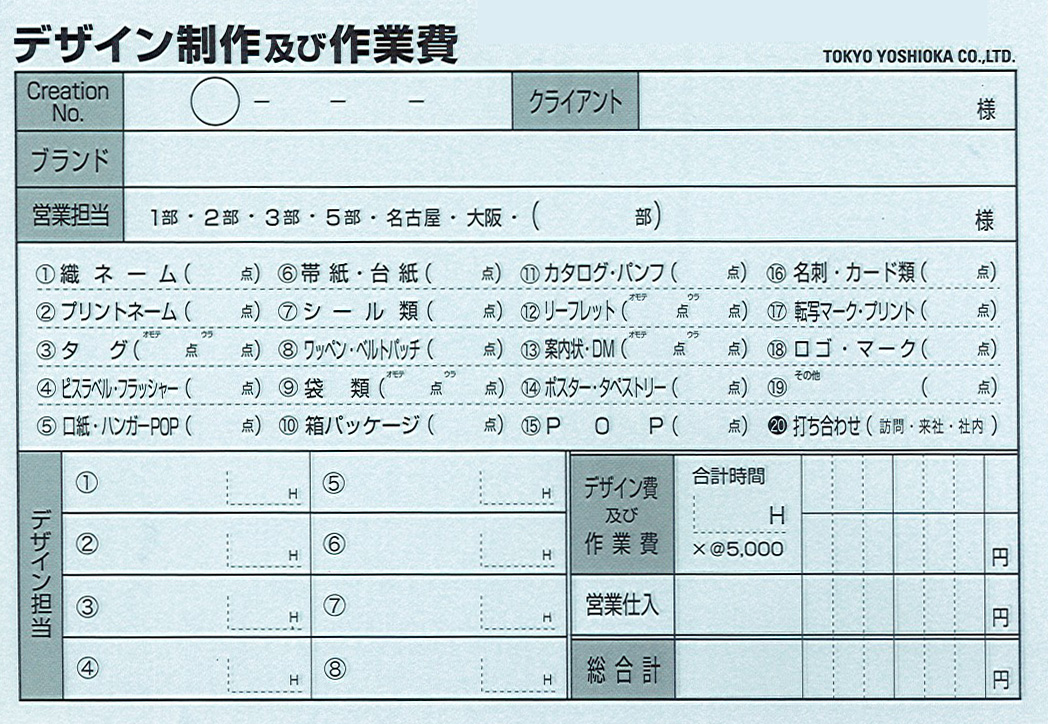 デザイン制作及び作業費
TOKYO YOSHIOKA CO.,LTD.
Creation No. ◯ － － － クライアント 様
ブランド
営業担当 1部・2部・3部・5部・名古屋・大阪・( 部) 様
①織ネーム( 点) ⑥帯紙・台紙( 点) ⑪カタログ・パンフ( 点) ⑯名刺・カード類( 点)
②プリントネーム( 点) ⑦シール類( 点) ⑫リーフレット(オモテ 点 ウラ 点) ⑰転写マーク・プリント( 点)
③タグ(オモテ 点 ウラ 点) ⑧ワッペン・ベルトパッチ( 点) ⑬案内状・DM(オモテ 点 ウラ 点) ⑱ロゴ・マーク( 点)
④ピスラベル・フラッシャー( 点) ⑨袋類(オモテ 点 ウラ 点) ⑭ポスター・タペストリー( 点) ⑲その他 ( 点)
⑤口紙・ハンガーPOP( 点) ⑩箱パッケージ( 点) ⑮POP( 点) ⓴打ち合わせ(訪問・来社・社内)
デザイン担当
① H ⑤ H
② H ⑥ H
③ H ⑦ H
④ H ⑧ H
デザイン費及び作業費 合計時間 H ×@5,000 円
営業仕入 円
総合計 円